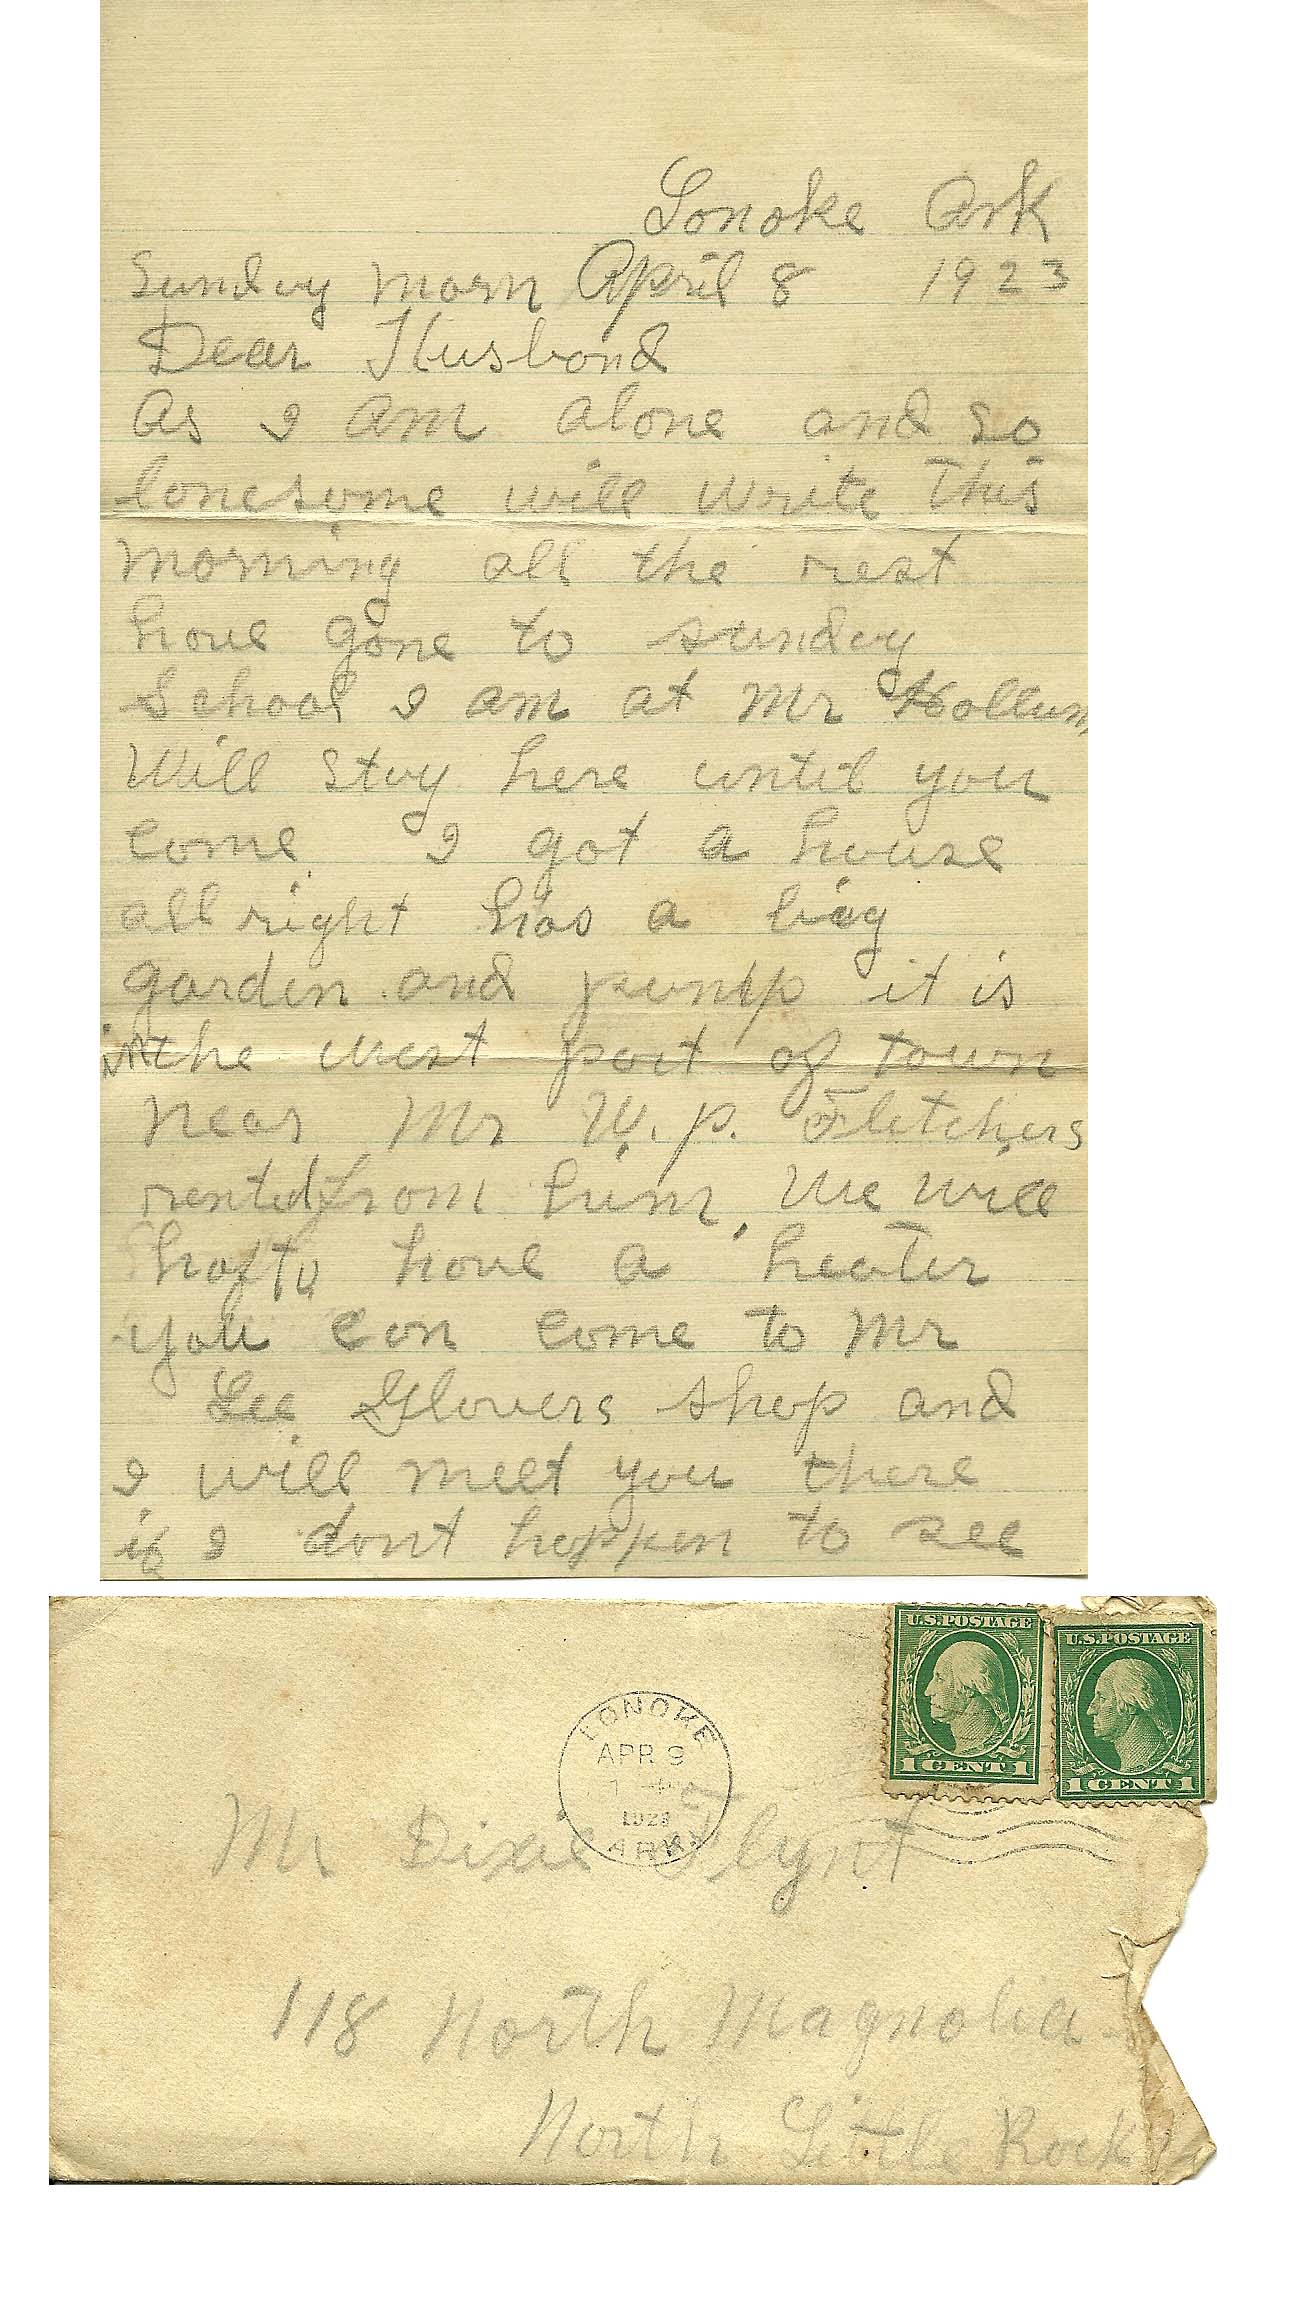 Lonoke Ark
Sunday morn April 8 1923
Dear Husband
As I am alone and so
lonesome will write this
morning all the rest
have gone to sunday
School I am at Mr
Will stay here until you
come I got a house
all right has a big
garden and pump it is
in the west part of town
near Mr W. P. Fletchers
rented from him. We will
hafto have a heater
you can come to Mr
Lee Glovers shop and
I will meet you there
if I dont happen to see
U.S. POSTAGE U.S. POSTAGE
1 CENT 1 1 CENT 1
LONOKE
APR 9
ARK.
Mr Dixie Flynt
118 North Magnolia
North Little Rock